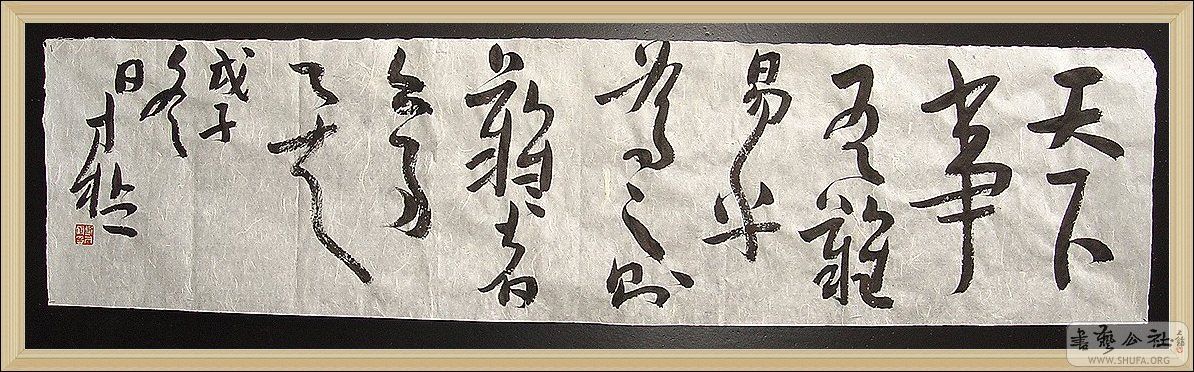 天下
事
有難
易乎
為之則
難者
亦易
矣
戊子
冬
日
書藝公社
WWW.SHUFA.ORG